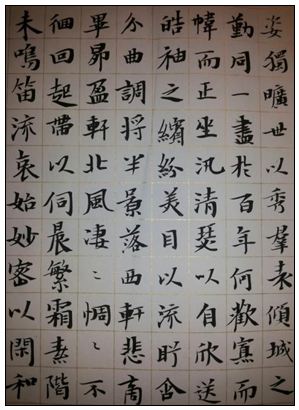 姿獨曠世以秀羣表傾城之
勤同一盡於百年何歡寡而
幃而正坐汎清瑟以自欣送
皓袖之繽紛美目以流眄含
分曲調將半景落西軒悲商
畢昴盈軒北風凄〻惆〻不
徊回起帶以伺晨繁霜素階
未鳴笛流哀始妙密以閑和